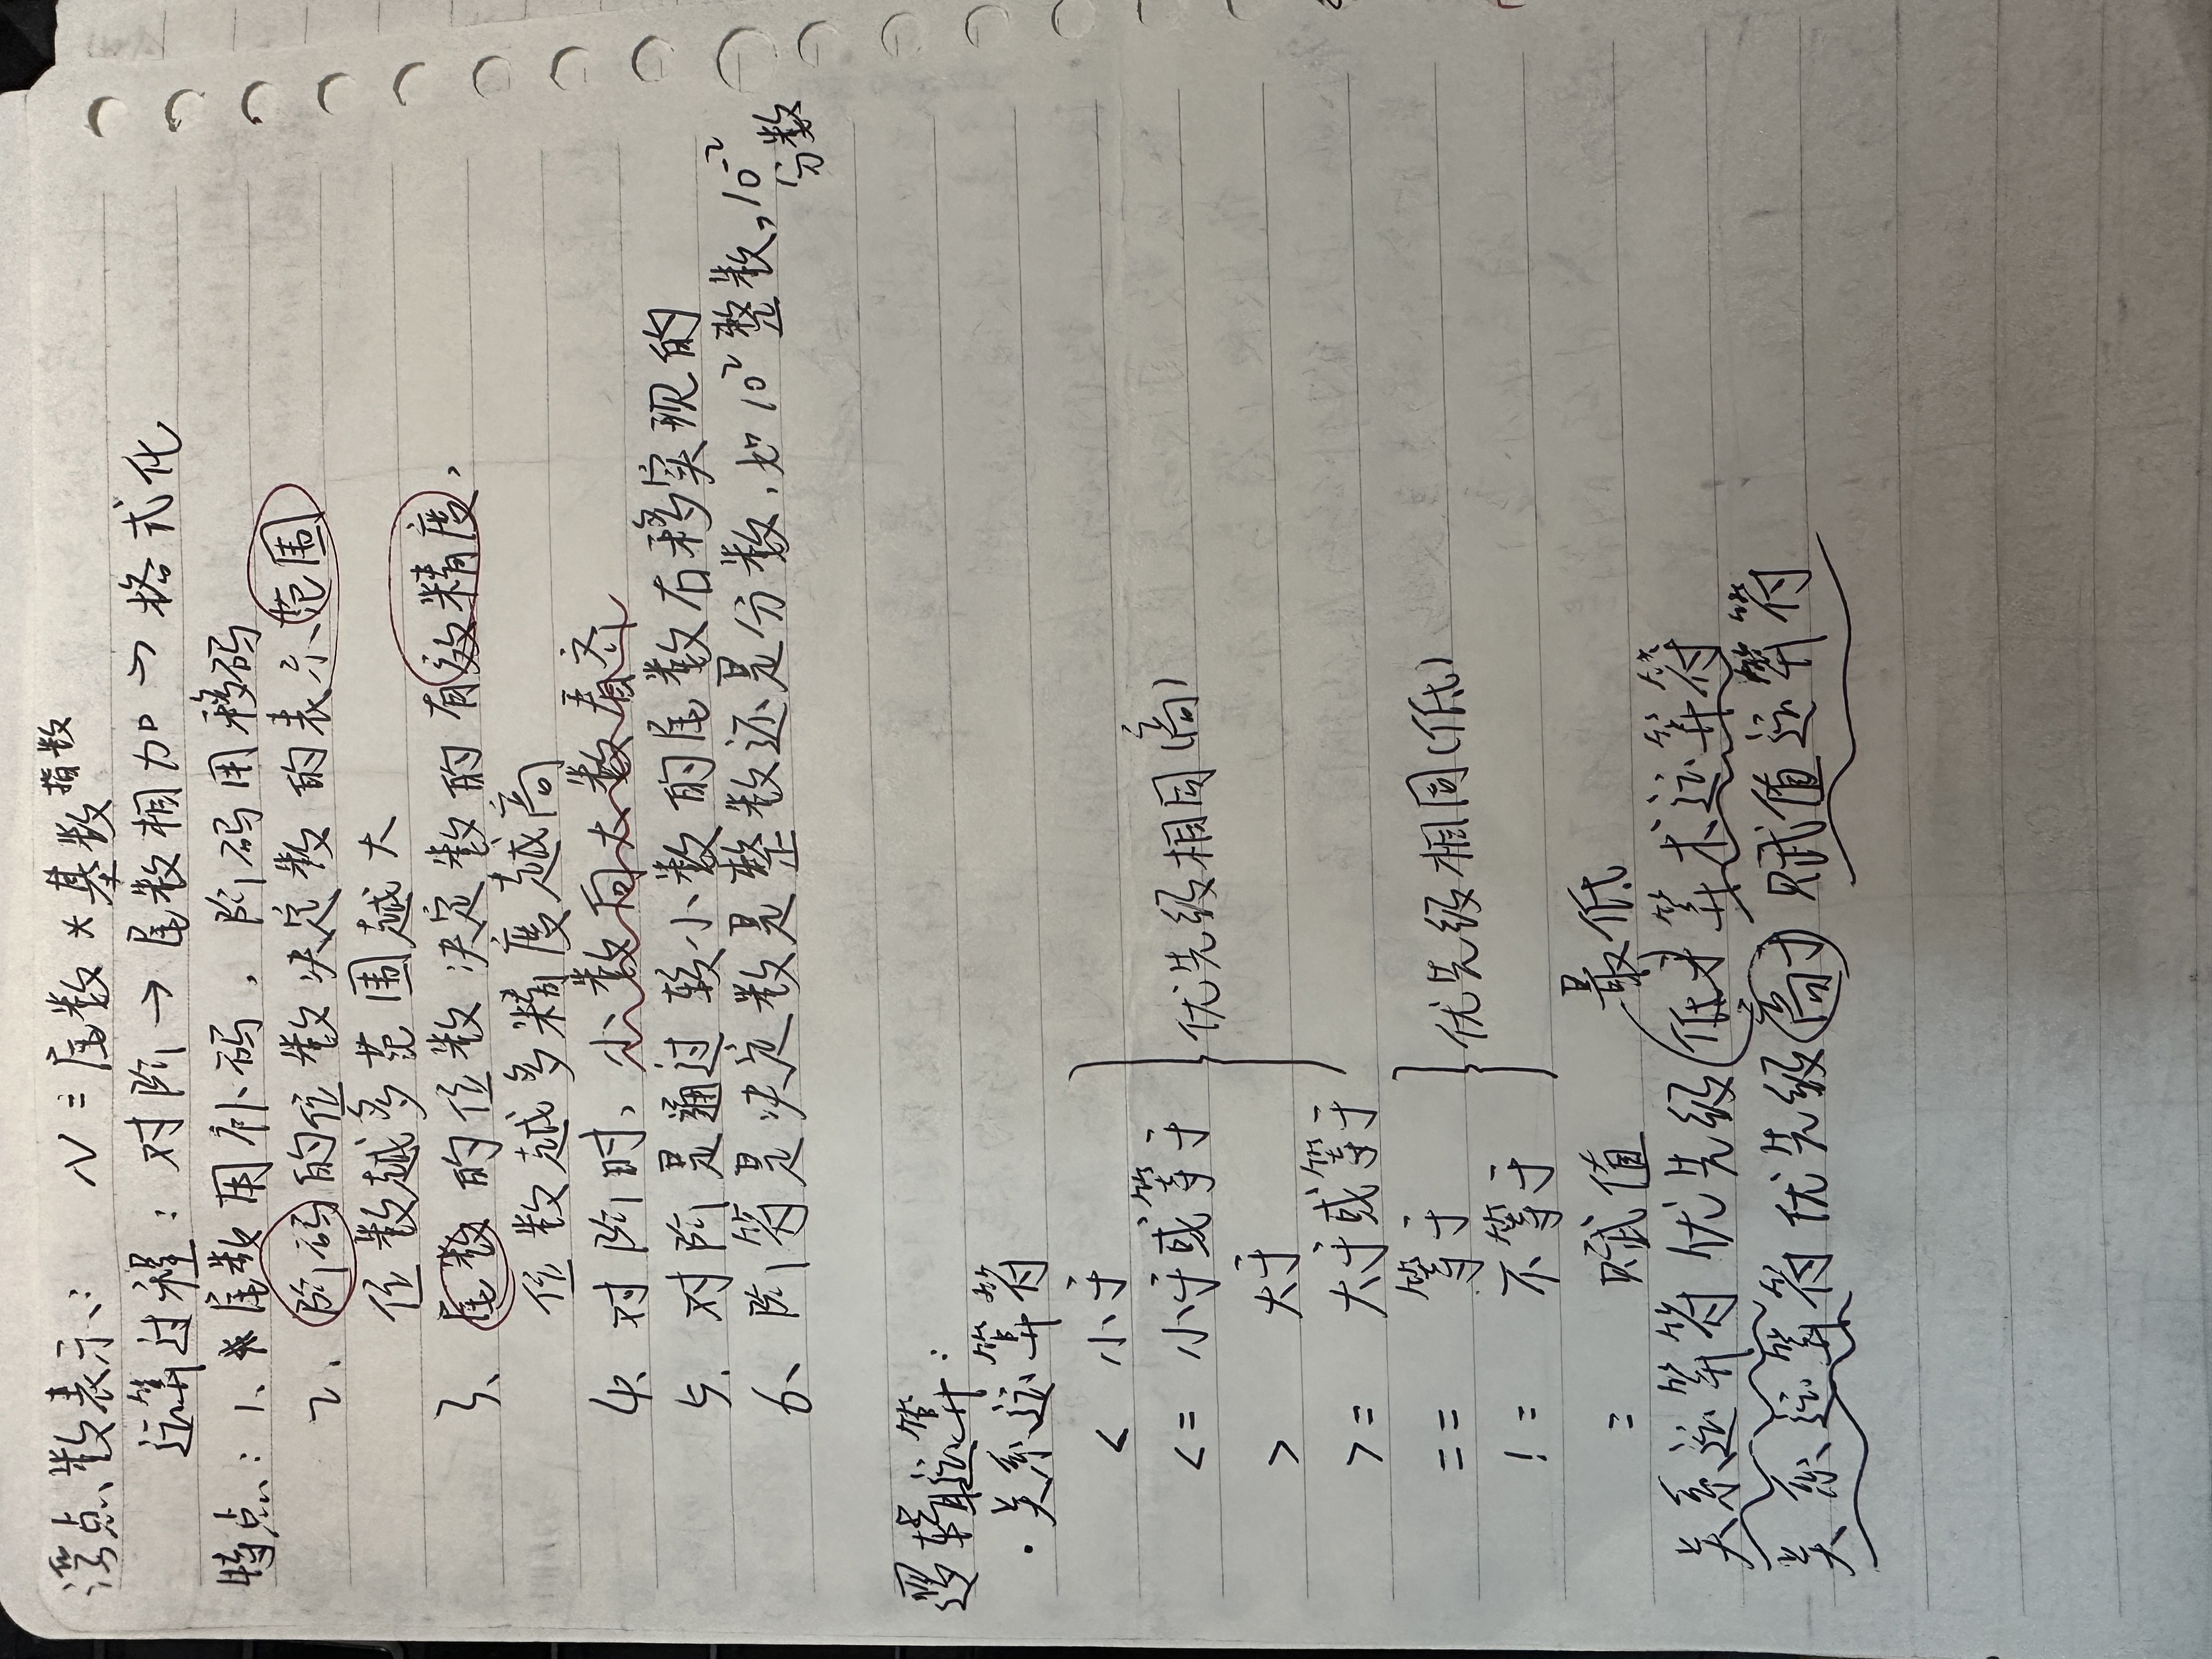 浮点数表示: N = 尾数 * 基数^指数
运算过程: 对阶 → 尾数相加 → 格式化
特点: 1、尾数用补码, 阶码用移码
2、阶码的位数决定数的表示范围
位数越多范围越大
3、尾数的位数决定数的有效精度,
位数越多精度越高
4、对阶时, 小数向大数看齐
5、对阶是通过较小数的尾数右移实现的
6、阶符是决定数是整数还是分数, 如10²整数, 10⁻²
分数
逻辑运算:
·关系运算符
< 小于
<= 小于或等于 优先级相同(高)
> 大于
>= 大于或等于
== 等于 优先级相同(低)
!= 不等于
= 赋值 最低
关系运算符优先级低于算术运算符
关系运算符优先级高于赋值运算符